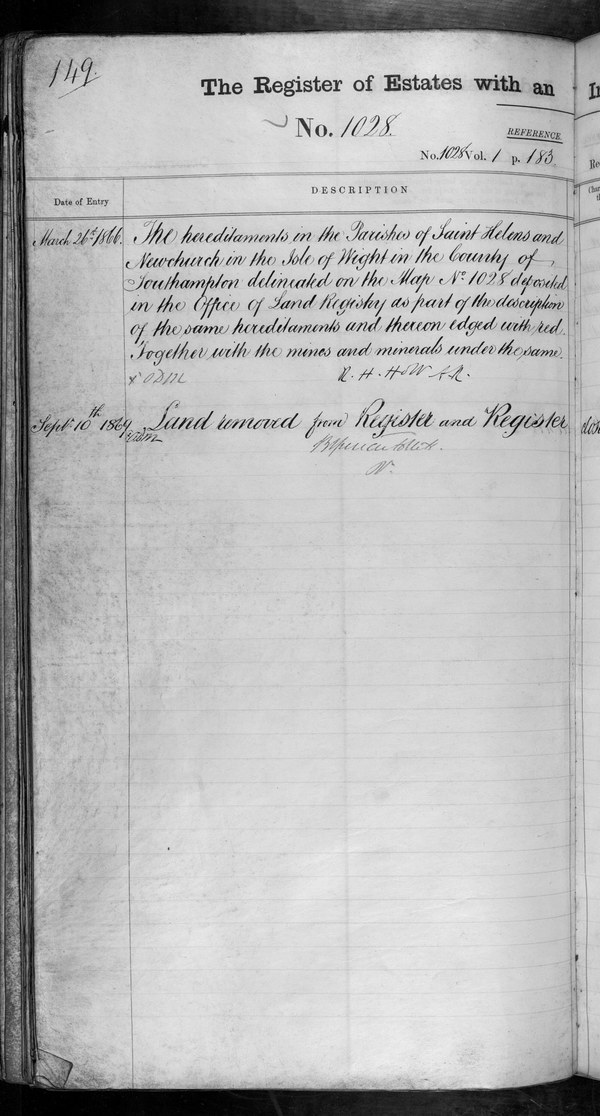 149.
The Register of Estates with an
No. 1028.
REFERENCE
No. 1028 Vol. 1 p. 183
Date of Entry
DESCRIPTION
March 26th 1866.
The hereditaments in the Parishes of Saint Helens and
Newchurch in the Isle of Wight in the County of
Southampton delineated on the Map No. 1028 deposited
in the Office of Land Registry as part of the description
of the same hereditaments and thereon edged with red.
Together with the mines and minerals under the same.
R. H. H
Septr. 10th 1869
Land removed from Register and Register
In